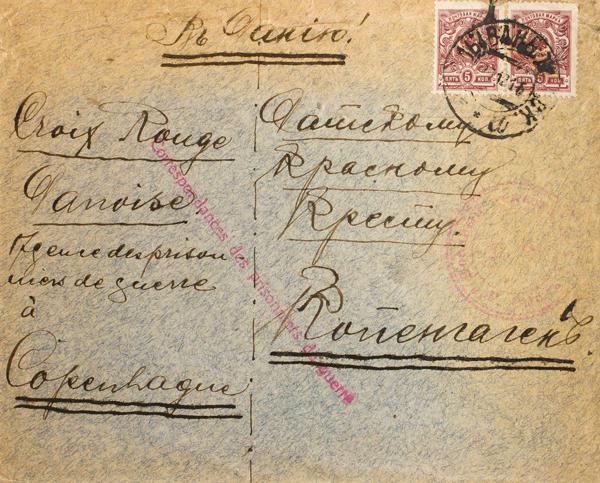 Въ Данію!
ПОЧТОВАЯ МАРКА
5 5
ПЯТЬ КОП.
ПОЧТОВАЯ МАРКА
5 5
ПЯТЬ КОП.
Croix Rouge
Danoise
Agence des prison
niers de guerre
à
Copenhague
Датскому
Красному
Кресту.
Копенгагенъ.
Correspondances des prisonniers de guerre